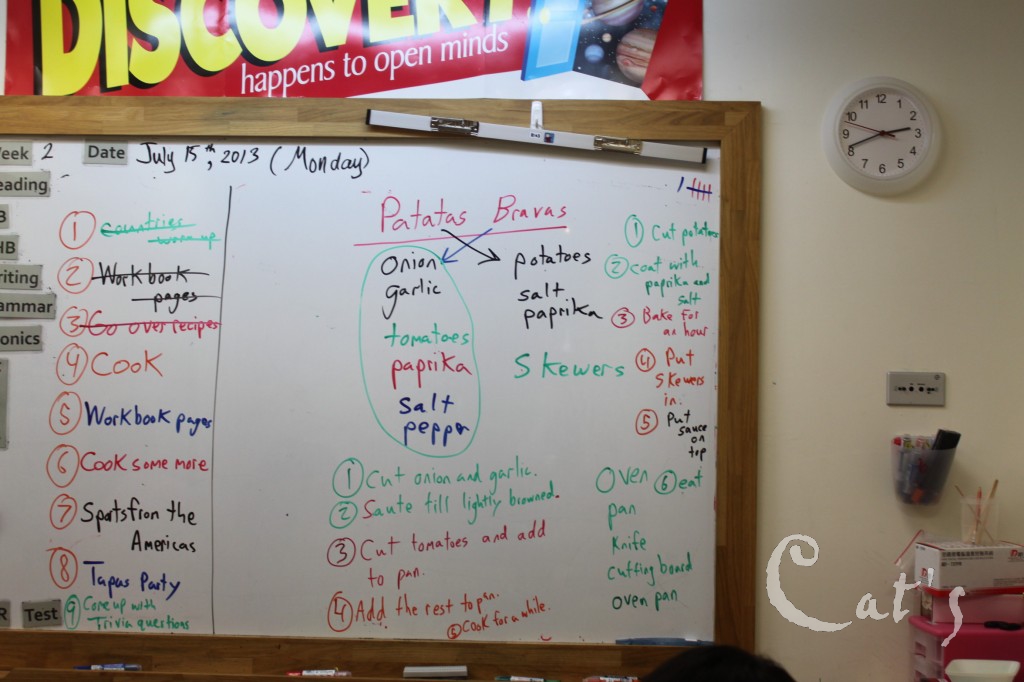 DISCOVERY
happens to open minds
Week 2
Date July 15th, 2013 (Monday)
Reading
HB
Writing
Grammar
Phonics
Test
① Countries
warm up
② Workbook
pages
③ Go over recipes
④ Cook
⑤ Workbook pages
⑥ Cook some more
⑦ Sports from the
Americas
⑧ Tapas Party
⑨ Come up with
Trivia questions
Patatas Bravas
onion
garlic
tomatoes
paprika
salt
pepper
potatoes
salt
paprika
Skewers
① Cut onion and garlic.
② Saute till lightly browned.
③ Cut tomatoes and add
to pan.
④ Add the rest to pan.
⑤ Cook for a while.
① Cut potatoes
② coat with
paprika and
salt
③ Bake for
an hour
④ Put
skewers
in.
⑤ Put
sauce
on
top
⑥ eat
Oven
pan
Knife
cutting board
oven pan
12
1
2
3
4
5
6
7
8
9
10
11
Cat's